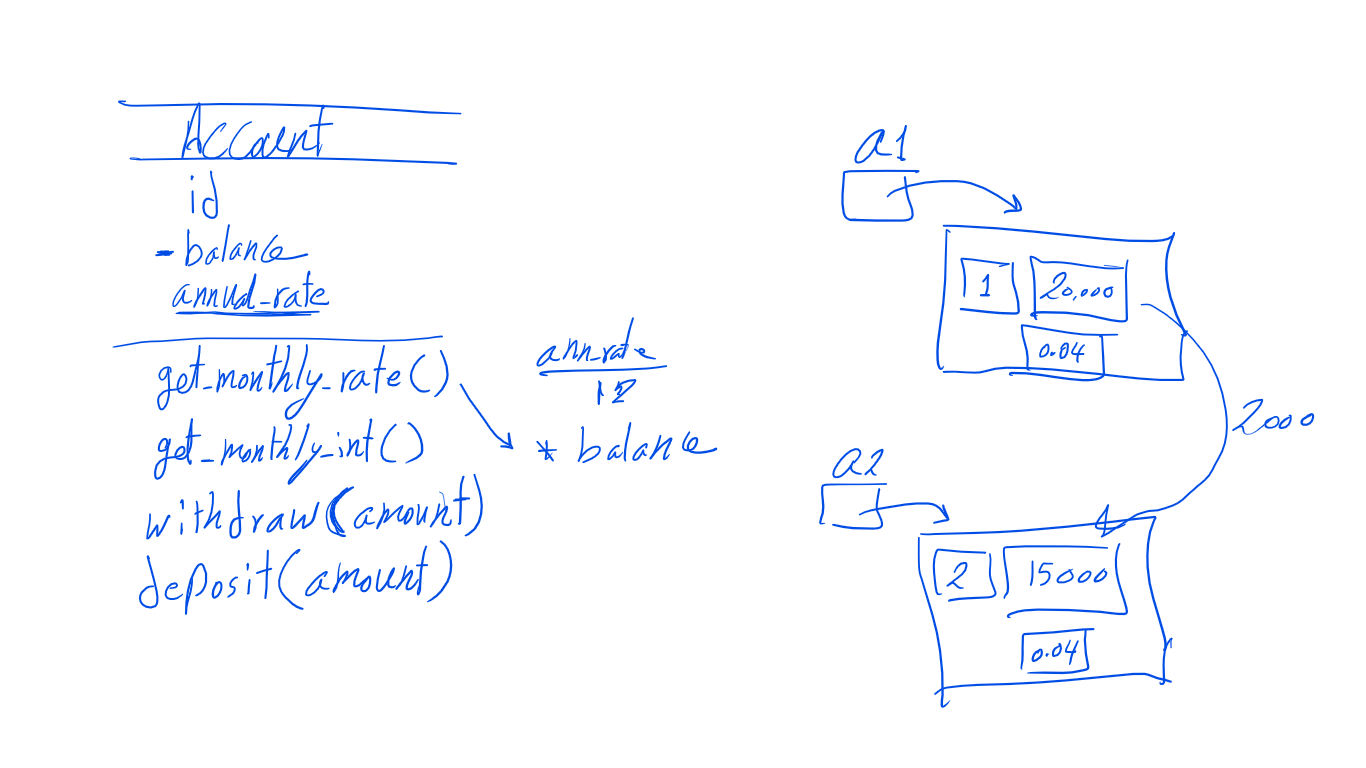 Account
id
- balance
annual_rate
get_monthly_rate()
get_monthly_int()
withdraw(amount)
deposit(amount)
ann_rate
12
* balance
a1
1 20,000
0.04
2000
a2
2 15000
0.04